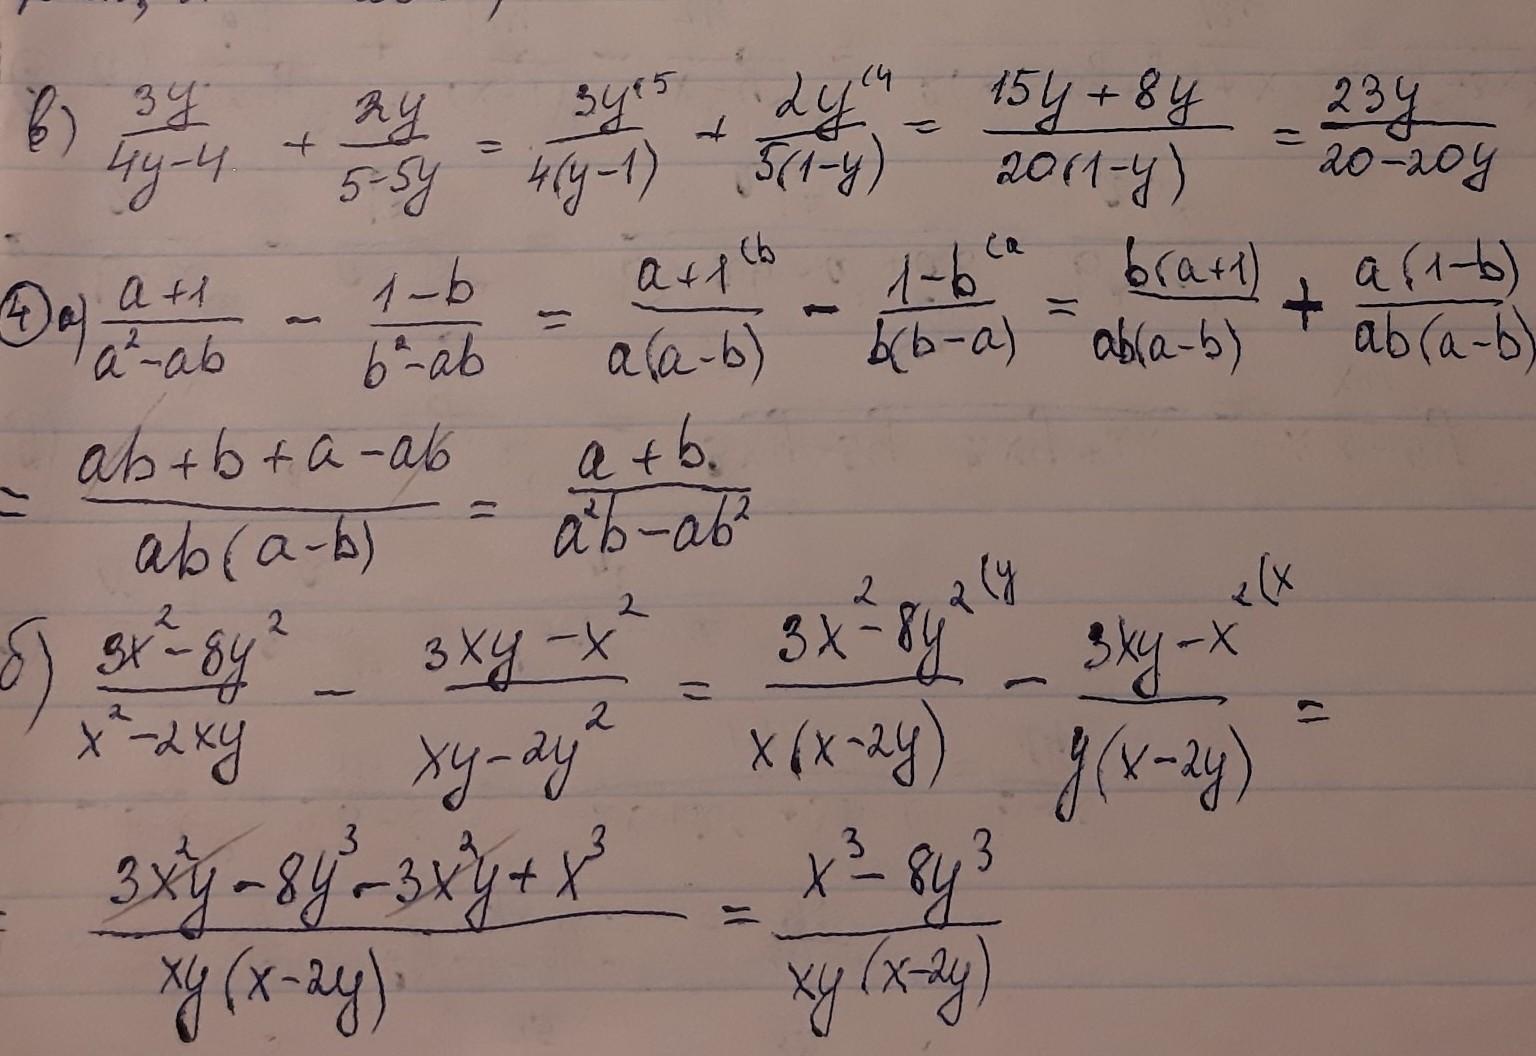 в) 3y/(4y-4) + 2y/(5-5y) = 3y(5/(4(y-1)) + 2y(4/(5(1-y)) = (15y+8y)/(20(1-y)) = 23y/(20-20y)
④ a) (a+1)/(a²-ab) - (1-b)/(b²-ab) = (a+1 (b)/(a(a-b)) - (1-b (a)/(b(b-a)) = b(a+1)/(ab(a-b)) + a(1-b)/(ab(a-b))
= (ab+b+a-ab)/(ab(a-b)) = (a+b)/(a²b-ab²)
б) (3x²-8y²)/(x²-2xy) - (3xy-x²)/(xy-2y²) = (3x²-8y² (y)/(x(x-2y)) - (3xy-x² (x)/(y(x-2y)) =
= (3x²y-8y³-3x²y+x³)/(xy(x-2y)) = (x³-8y³)/(xy(x-2y))